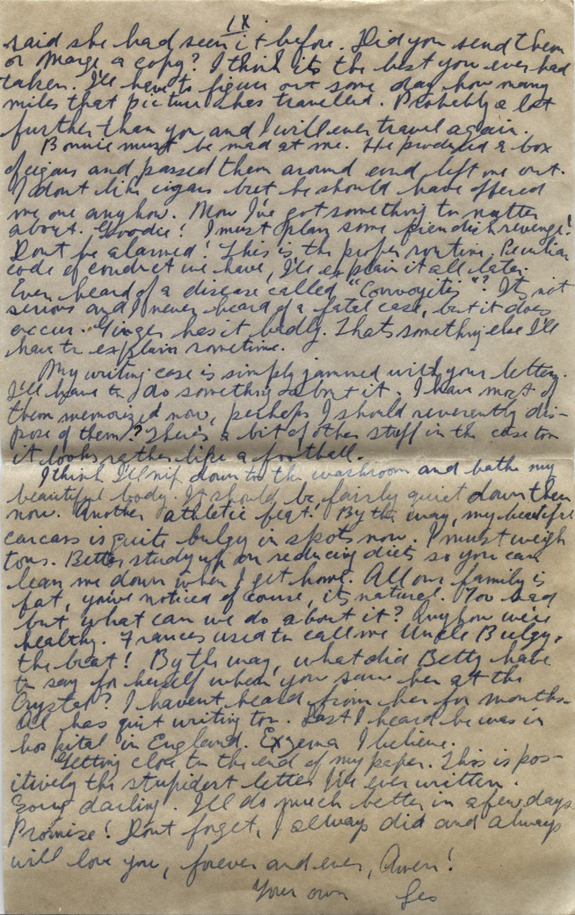 IX.
said she had seen it before. Did you send them
or Marge a copy? I think its the best you ever had
taken. I'll have to figure out some day how many
miles that picture has travelled. Probably a lot
further than you and I will ever travel again.
Bonnie must be mad at me. He produced a box
of cigars and passed them around and left me out.
I dont like cigars but he should have offered
me one anyhow. Now I've got something to mutter
about. Goodee! I must plan some fiendish revenge!
Dont be alarmed! This is the proper routine. Peculiar
code of conduct we have, I'll explain it all later.
Ever heard of a disease called "Convoyitis"? Its not
serious and I never heard of a fatal case, but it does
occur. Ginger has it badly. Thats something else I'll
have to explain sometime.
My writing case is simply jammed with your letters.
I'll have to do something about it. I have most of
them memorized now, perhaps I should reverently dis-
pose of them? There's a bit of other stuff in the case too
it looks rather like a football.
I think I'll nip down to the washroom and bathe my
beautiful body. It should be fairly quiet down there
now. Another athletic feat! By the way, my beautiful
carcass is quite bulgy in spots now. I must weigh
tons. Better study up on reducing diets so you can
lean me down when I get home. All our family is
fat, you've noticed of course, its natural. Too bad
but, what can we do about it? Anyhow we're
healthy. Frances used to call me Uncle Bulgy,
the brat! By the way, what did Betty have
to say for herself when you saw her at the
I havent heard from her for months.
Al has quit writing too. Last I heard he was in
hospital in England. Exzema I believe.
Getting close to the end of my paper. This is pos-
itively the stupidest letter I've ever written.
Sorry darling. I'll do much better in a few days.
Promise! Dont forget, I always did and always
will love you, forever and ever, Amen!
Your own Les